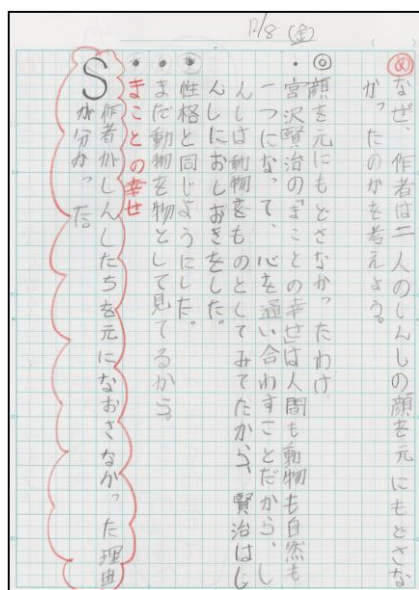 12/8(金)
(め)なぜ、作者は二人のしんしの顔を元にもどさな
かったのかを考えよう。
◎顔を元にもどさなかったわけ
・宮沢賢治の「まことの幸せ」は人間も動物も自然も
一つになって、心を通い合わすことだから、し
んしは動物をものとしてみてたから、賢治はし
んしにおしおきをした。
・性格と同じようにした。
・まだ動物を物として見てるから。
・まことの幸せ
S作者がしんしたちを元になおさなかった理由
が分かった